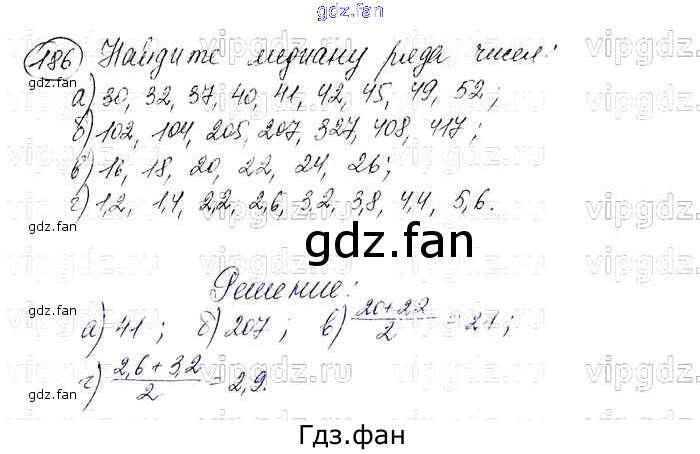 gdz.fan
186 Найдите медиану ряда чисел:
а) 30, 32, 37, 40, 41, 42, 45, 49, 52;
б) 102, 104, 205, 207, 327, 408, 417;
в) 16, 18, 20, 22, 24, 26;
г) 1,2, 1,4, 2,2, 2,6, 3,2, 3,8, 4,4, 5,6.
gdz.fan
Решение:
а) 41; б) 207; в) 20+22/2 = 21;
г) 2,6+3,2/2 = 2,9.
Гдз.фан